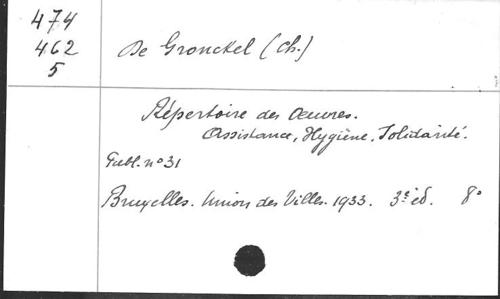 474
462
5
De Gronckel (Ch.)
Répertoire des Oeuvres.
Assistance, Hygiène, Solidarité.
Publ. n° 31
Bruxelles. Union des Villes. 1933. 3e éd. 8°